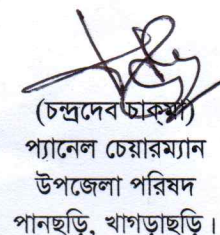 (চন্দ্রদেব চাক্‌মা)
প্যানেল চেয়ারম্যান
উপজেলা পরিষদ
পানছড়ি, খাগড়াছড়ি।